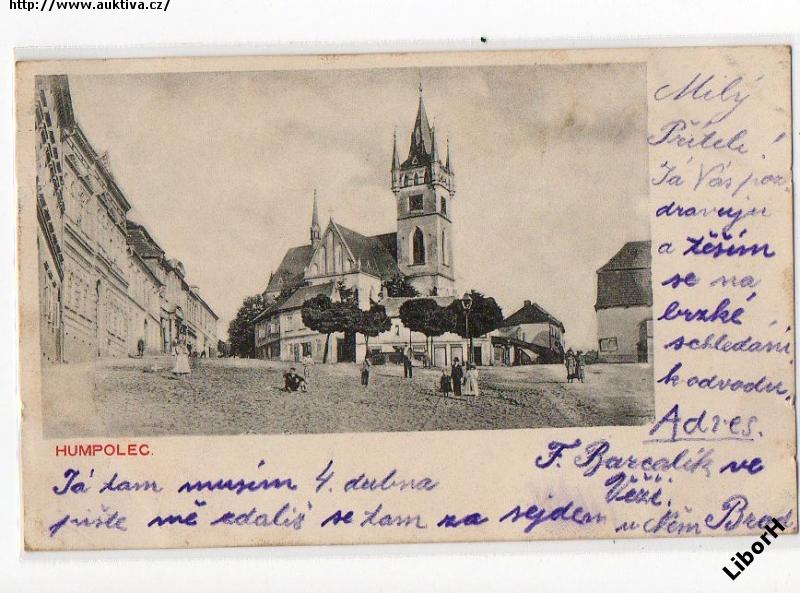 http://www.auktiva.cz/
Milý
Příteli!
Já Vás poz-
dravuju
a těším
se na
brzké
schledání
k odvodu.
Adres.
F. Barcalík ve
Věži.
u Něm Brod.
HUMPOLEC.
Já tam musím 4. dubna
pište mě zdališ se tam za sejdem
LiborH